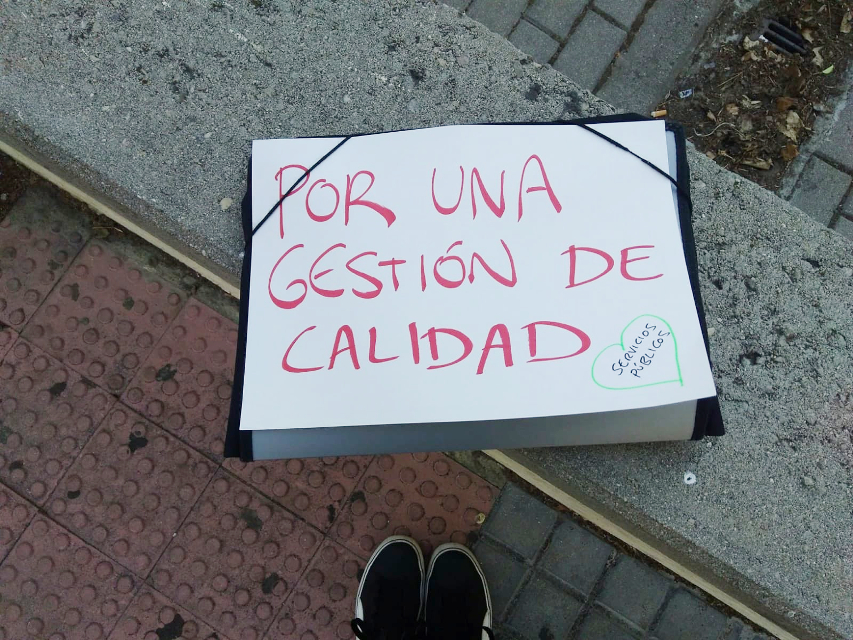 POR UNA
GESTIÓN DE
CALIDAD
SERVICIOS
PÚBLICOS